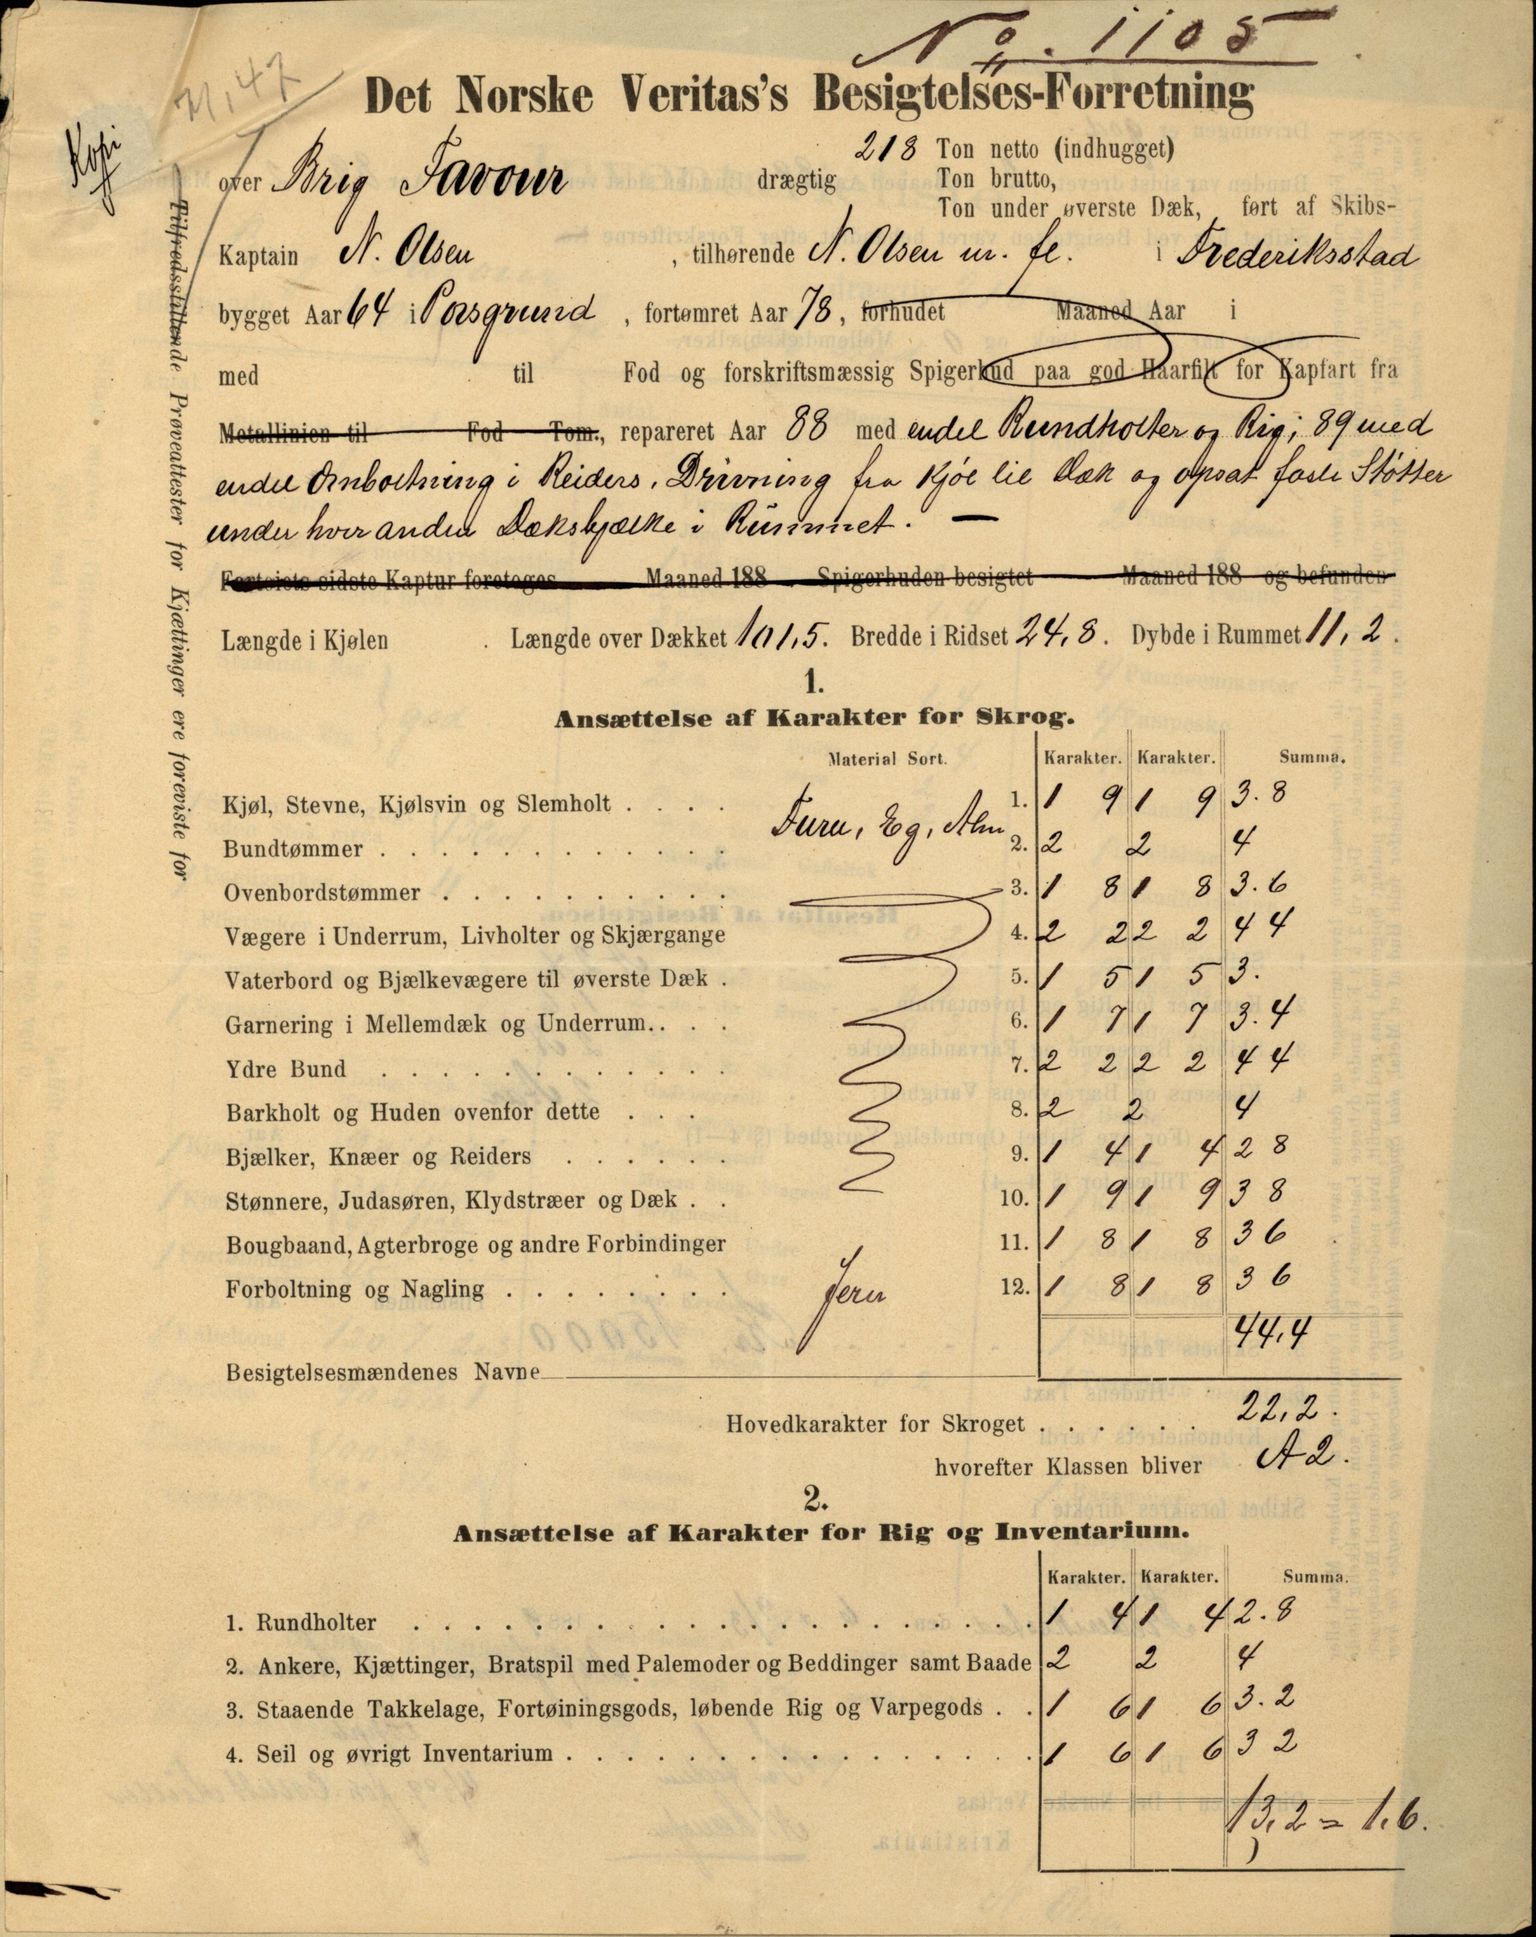 No. 1105
71,47
Kopi
Det Norske Veritas's Besigtelses-Forretning
over Brig Favour drægtig 218 Ton netto (indhugget)
Ton brutto,
Ton under øverste Dæk, ført af Skibs-
Kaptain N. Olsen , tilhørende N. Olsen m. fl. i Frederiksstad
bygget Aar 64 i Porsgrund , fortømret Aar 78, forhudet Maaned Aar i
med til Fod og forskriftsmæssig Spigerhud paa god Haarfilt for Kapfart fra
Metallinien til Fod Tom., repareret Aar 88 med endel Rundholter og Rig; 89 med
endel Omboltning i Reiders, Drivning fra Kjøl til Dæk og opsat faste Støtter
under hver anden Dæksbjælke i Rummet. —
Forteiets sidste Kaptur foretoges Maaned 188 . Spigerhuden besigtet Maaned 188 og befunden
Længde i Kjølen . Længde over Dækket 101,5. Bredde i Ridset 24,8. Dybde i Rummet 11,2.
Tilfredsstillende Prøvattester for Kjættinger ere foreviste for
1.
Ansættelse af Karakter for Skrog.
Material Sort. Karakter. Karakter. Summa.
Kjøl, Stevne, Kjølsvin og Slemholt . . . . 1. 1 9 1 9 3.8
Furu, Eg, Alm
Bundtømmer . . . . . . . . . . . . 2. 2 2 4
Ovenbordstømmer . . . . . . . . . . 3. 1 8 1 8 3.6
Vægere i Underrum, Livholter og Skjærgange 4. 2 2 2 2 4 4
Vaterbord og Bjælkevægere til øverste Dæk . 5. 1 5 1 5 3.
Garnering i Mellemdæk og Underrum. . . . 6. 1 7 1 7 3.4
Ydre Bund . . . . . . . . . . . . 7. 2 2 2 2 4 4
Barkholt og Huden ovenfor dette . . . 8. 2 2 4
Bjælker, Knæer og Reiders . . . . . . 9. 1 4 1 4 2 8
Stønnere, Judasøren, Klydstræer og Dæk . . 10. 1 9 1 9 3 8
Bougbaand, Agterbroge og andre Forbindinger 11. 1 8 1 8 3 6
Forboltning og Nagling . . . . . . . . Jern 12. 1 8 1 8 3 6
44,4
Besigtelsesmændenes Navne
Hovedkarakter for Skroget . . . . . . 22,2.
hvorefter Klassen bliver A2.
2.
Ansættelse af Karakter for Rig og Inventarium.
Karakter. Karakter. Summa.
1. Rundholter . . . . . . . . . . . . . . . . . 1 4 1 4 2.8
2. Ankere, Kjættinger, Bratspil med Palemoder og Beddinger samt Baade 2 2 4
3. Staaende Takkelage, Fortøiningsgods, løbende Rig og Varpegods . . 1 6 1 6 3.2
4. Seil og øvrigt Inventarium . . . . . . . . . . . . . 1 6 1 6 3 2
13,2 = 1.6.